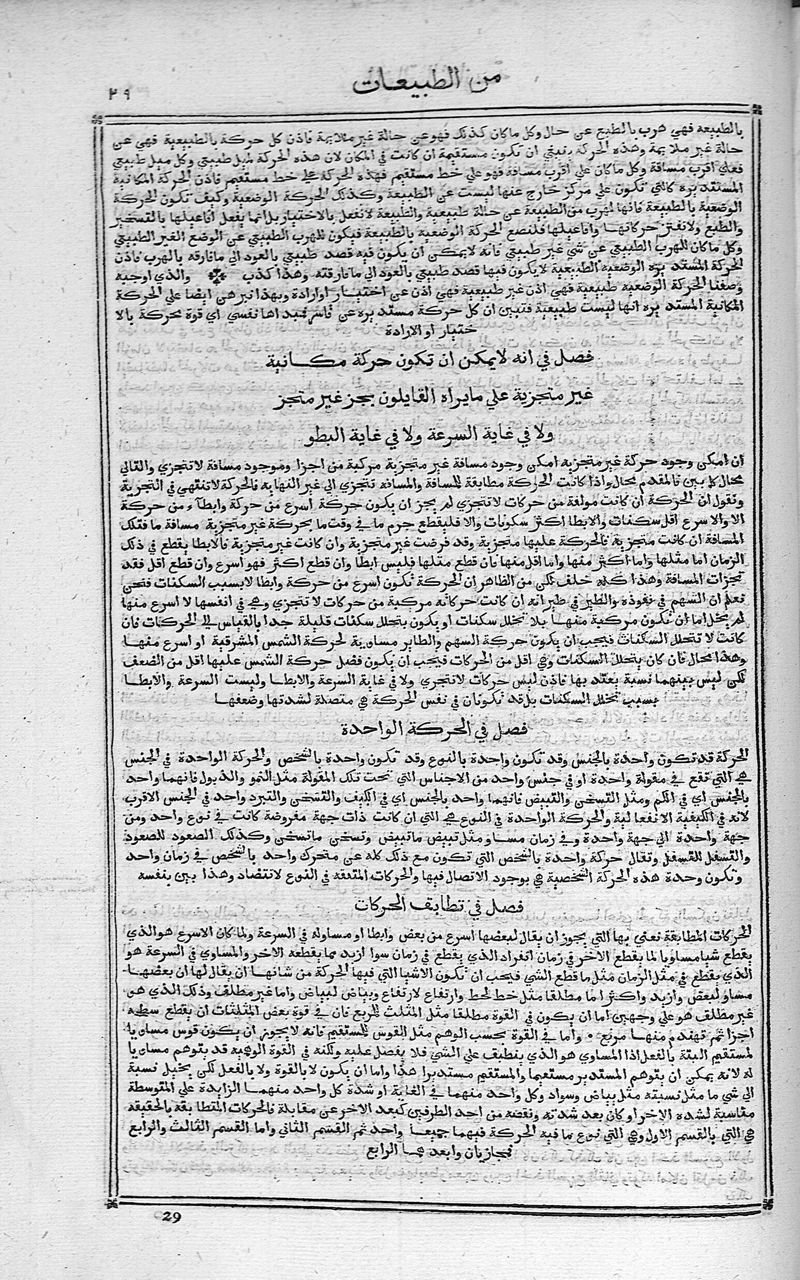 من الطبيعات
٢٩
بالطبيعة فهي هرب بالطبع عن حال وكل ما كان كذلك فهو عن حالة غير ملايمة فاذن كل حركة بالطبيعية فهي عن
حالة غير ملايمة وهذه الحركة ينبغي ان تكون مستقيمة ان كانت في المكان لان هذه الحركة لميل طبيعي وكل ميل طبيعي
فعلي اقرب مسافة وكل ما كان علي اقرب مسافة فهو علي خط مستقيم فهذه الحركة علي خط مستقيم فاذن الحركة المكانية
المستديره كالتي تكون علي مركز خارج عنها ليست عن الطبيعة وكذلك الحركة الوضعية وكيف تكون الحركة
الوضعية بالطبيعة فانها لهرب من الطبيعة عن حالة طبيعية والطبيعة لا تفعل بالاختيار بل انما يفعل افاعيلها بالتسخير
والطبع ولا تفتن حركاتها وافاعيلها فلنضع الحركة الوضعية بالطبيعة فيكون للهرب الطبيعي عن الوضع الغير الطبيعي
وكل ما كان للهرب الطبيعي عن شي غير طبيعي فانه لا يمكن ان يكون فيه قصد طبيعي بالعود الي ما فارقه بالهرب فاذن
الحركة المستديره الوضعية الطبيعية لا يكون فيها قصد طبيعي بالعود الي ما فارقته وهذا كذب والذي اوجبه
وضعنا الحركة الوضعيه طبيعية فهي اذن غير طبيعية فهي اذن عن اختيار او ارادة وبهذا نبرهن ايضا علي الحركة
المكانية المستديره انها ليست طبيعية فتبين ان كل حركة مستديره عن قاسر فمبداها نفس اي قوة محركة بالا
ختيار او الارادة
فصل في انه لا يمكن ان تكون حركة مكانية
غير متجزية علي ما يراه القايلون بجز غير متجز
ولا في غاية السرعة ولا في غاية البطو
ان امكن وجود حركة غير متجزيه امكن وجود مسافة غير متجزية مركبة من اجزا وموجود مسافة لا تتجزي والتالي
محال كما بين فالمقدم محال واذا كانت الحركة مطابقة للمسافة والمسافة تتجزي الي غير النهاية فالحركة لا تنتهي في التجزية
ونقول ان الحركة ان كانت مولفة من حركات لا تتجزي لم يجز ان يكون حركة اسرع من حركة وابطاء من حركة
الا والاسرع اقل سكنات والابطا اكثر سكونات والا فليقطع جرم ما في وقت ما بحركة غير متجزية مسافة ما فتلك
المسافة ان كانت متجزية فالحركة عليها متجزية وقد فرضت غير متجزية وان كانت غير متجزية فالابطا يقطع في ذلك
الزمان اما مثلها واما اكثر منها واما اقل منها فان قطع مثلها فليس ابطا وان قطع اكثر فهو اسرع وان قطع اقل فقد
تجزات المسافة وهذا كله خلف لكن من الظاهر ان الحركة تكون اسرع من حركة وابطا لا بسبب السكنات فنحن
نعلم ان السهم في نفوذه والطير في طيرانه ان كانت حركاته مركبة من حركات لا تتجزي وهي في انفسها لا اسرع منها
لم يخل اما ان تكون مركبة منها بلا تخلل سكنات او يكون بتخلل سكنات قليلة جدا بالقياس الي الحركات فان
كانت لا تتخلل السكنات فيجب ان يكون حركة السهم والطاير مساوية لحركة الشمس المشرقية او اسرع منها
وهذا محال فان كان بتخلل السكنات وهي اقل من الحركات فيجب ان يكون فضل حركة الشمس عليها اقل من الضعف
لكن ليس بينهما نسبة يعتد بها فاذن ليس حركات لا تتجزي ولا في غاية السرعة والابطا وليست السرعة والابطا
بسبب تخلل السكنات بل قد تكونان في نفس الحركة هي متصلة لشدتها وضعفها
فصل في الحركة الواحدة
الحركة قد تكون واحدة بالجنس وقد تكون واحدة بالنوع وقد تكون واحدة بالشخص والحركة الواحدة في الجنس
هي التي تقع في مقولة واحدة او في جنس واحد من الاجناس التي تحت تلك المقولة مثل النمو والذبول فانهما واحد
بالجنس اي في الكم ومثل التسخن والتبيض فانهما واحد بالجنس اي في الكيف والتسخن والتبرد واحد في الجنس الاقرب
لانه في الكيفية الانفعالية والحركة الواحدة في النوع هي التي ان كانت ذات جهة مفروضة كانت في نوع واحد ومن
جهة واحدة الي جهة واحدة وفي زمان مساو مثل تبيض ما يتبيض وتسخن ما يتسخن وكذلك الصعود للصعود
والتسفل للتسفل وتقال حركة واحدة بالشخص التي تكون مع ذلك كله عن متحرك واحد بالشخص في زمان واحد
وتكون وحدة هذه الحركة الشخصية هي بوجود الاتصال فيها والحركات المتفقه في النوع لا تتضاد وهذا بين بنفسه
فصل في تطابق الحركات
الحركات المطابقة نعني بها التي يجوز ان يقال لبعضها اسرع من بعض وابطا او مساوله في السرعة ولما كان الاسرع هو الذي
يقطع شيا مساويا لما يقطع الاخر في زمان انفراد الذي يقطع في زمان سوا ازيد مما يقطعه الاخر والمساوي في السرعة هو
الذي يقطع في مثل الزمان مثل ما قطع الشي فيجب ان تكون الاشيا التي فيها الحركة من شانها ان يقال لها ان بعضها
مساو لبعض وازيد واكثر اما مطلقا مثل خط لخط وارتفاع لارتفاع وبياض لبياض واما غير مطلق وذلك الذي هو
غير مطلق هو علي وجهين اما ان يكون في القوة مطلقا مثل المثلث للمربع فان في قوة بعض المثلثات ان يقطع سطحه
اجزا ثم تهندم منها مربع واما في القوة بحسب الوهم مثل القوس للمستقيم فانه لا يجوز ان يكون قوس مساويا
لمستقيم البتة بالفعل اذا المساوي هو الذي ينطبق علي الشي فلا يفضل عليه ولكنه في القوة الوهميه قد يتوهم مساويا
له لانه يمكن ان يتوهم المستدير مستقيما والمستقيم مستديرا هذا واما ان يكون لا بالقوة ولا بالفعل لكن يخيل نسبة
الي شي ما مثل نسبته مثل بياض وسواد وكل واحد منهما في الغاية او شدة كل واحد منهما الزايدة علي المتوسطة
مقاسبة لشده الاخر او كان بعد شدته ونقصه من احد الطرفين كبعد الاخر عن مقابلة فالحركات المتطابقه بالحقيقه
هي التي بالقسم الاول وهي التي نوع ما فيه الحركة فيهما جميعا واحد ثم القسم الثاني واما القسم الثالث والرابع
فمجازيان وابعدهما الرابع
29